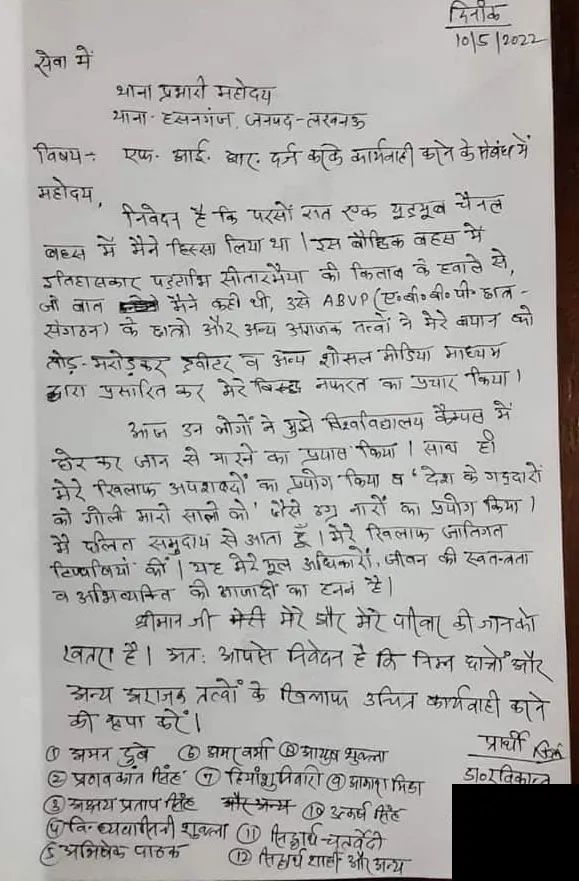 दिनाँक
10/5/2022
सेवा में
थाना प्रभारी महोदय
थाना- हसनगंज, जनपद-लखनऊ
विषय:- एफ. आई. आर. दर्ज करके कार्यवाही करने के संबंध में
महोदय,
निवेदन है कि परसों रात एक यूट्यूब चैनल
बहस में मैंने हिस्सा लिया था। इस बौद्धिक बहस में
इतिहासकार पट्टाभि सीतारमैया की किताब के हवाले से,
जो बात मैंने कही थी, उसे ABVP (ए०बी०वी०पी० छात्र-
संगठन) के छात्रों और अन्य अराजक तत्वों ने मेरे बयान को
तोड़-मरोड़कर ट्वीटर व अन्य शोसल मीडिया माध्यम
द्वारा प्रसारित कर मेरे विरुद्ध नफरत का प्रचार किया।
आज उन लोगों ने मुझे विश्वविद्यालय कैम्पस में
घेर कर जान से मारने का प्रयास किया। साथ ही
मेरे खिलाफ अपशब्दों का प्रयोग किया व 'देश के गद्दारों
को गोली मारो सालों को' जैसे उग्र नारों का प्रयोग किया।
मैं दलित समुदाय से आता हूँ। मेरे खिलाफ जातिगत
टिप्पणियां कीं। यह मेरे मूल अधिकारों, जीवन की स्वतन्त्रता
व अभिव्यक्ति की आजादी का हनन है।
श्रीमान जी मेरी मेरे और मेरे परिवार की जानको
खतरा है। अतः आपसे निवेदन है कि निम्न छात्रों और
अन्य अराजक तत्वों के खिलाफ उचित कार्यवाही करने
की कृपा करें।
प्रार्थी
डा० रविकान्त
① अमन दुबे ⑥ अमर वर्मा ⑧ आयुष शुक्ला
② प्रणवकांत सिंह ⑦ हिमांशु तिवारी ⑨
③ अक्षय प्रताप सिंह और अन्य ⑩ उत्कर्ष सिंह
④ विन्ध्यवासिनी शुक्ला ⑪ सिद्धार्थ चतुर्वेदी
⑤ अभिषेक पाठक ⑫ सिद्धार्थ शाही और अन्य